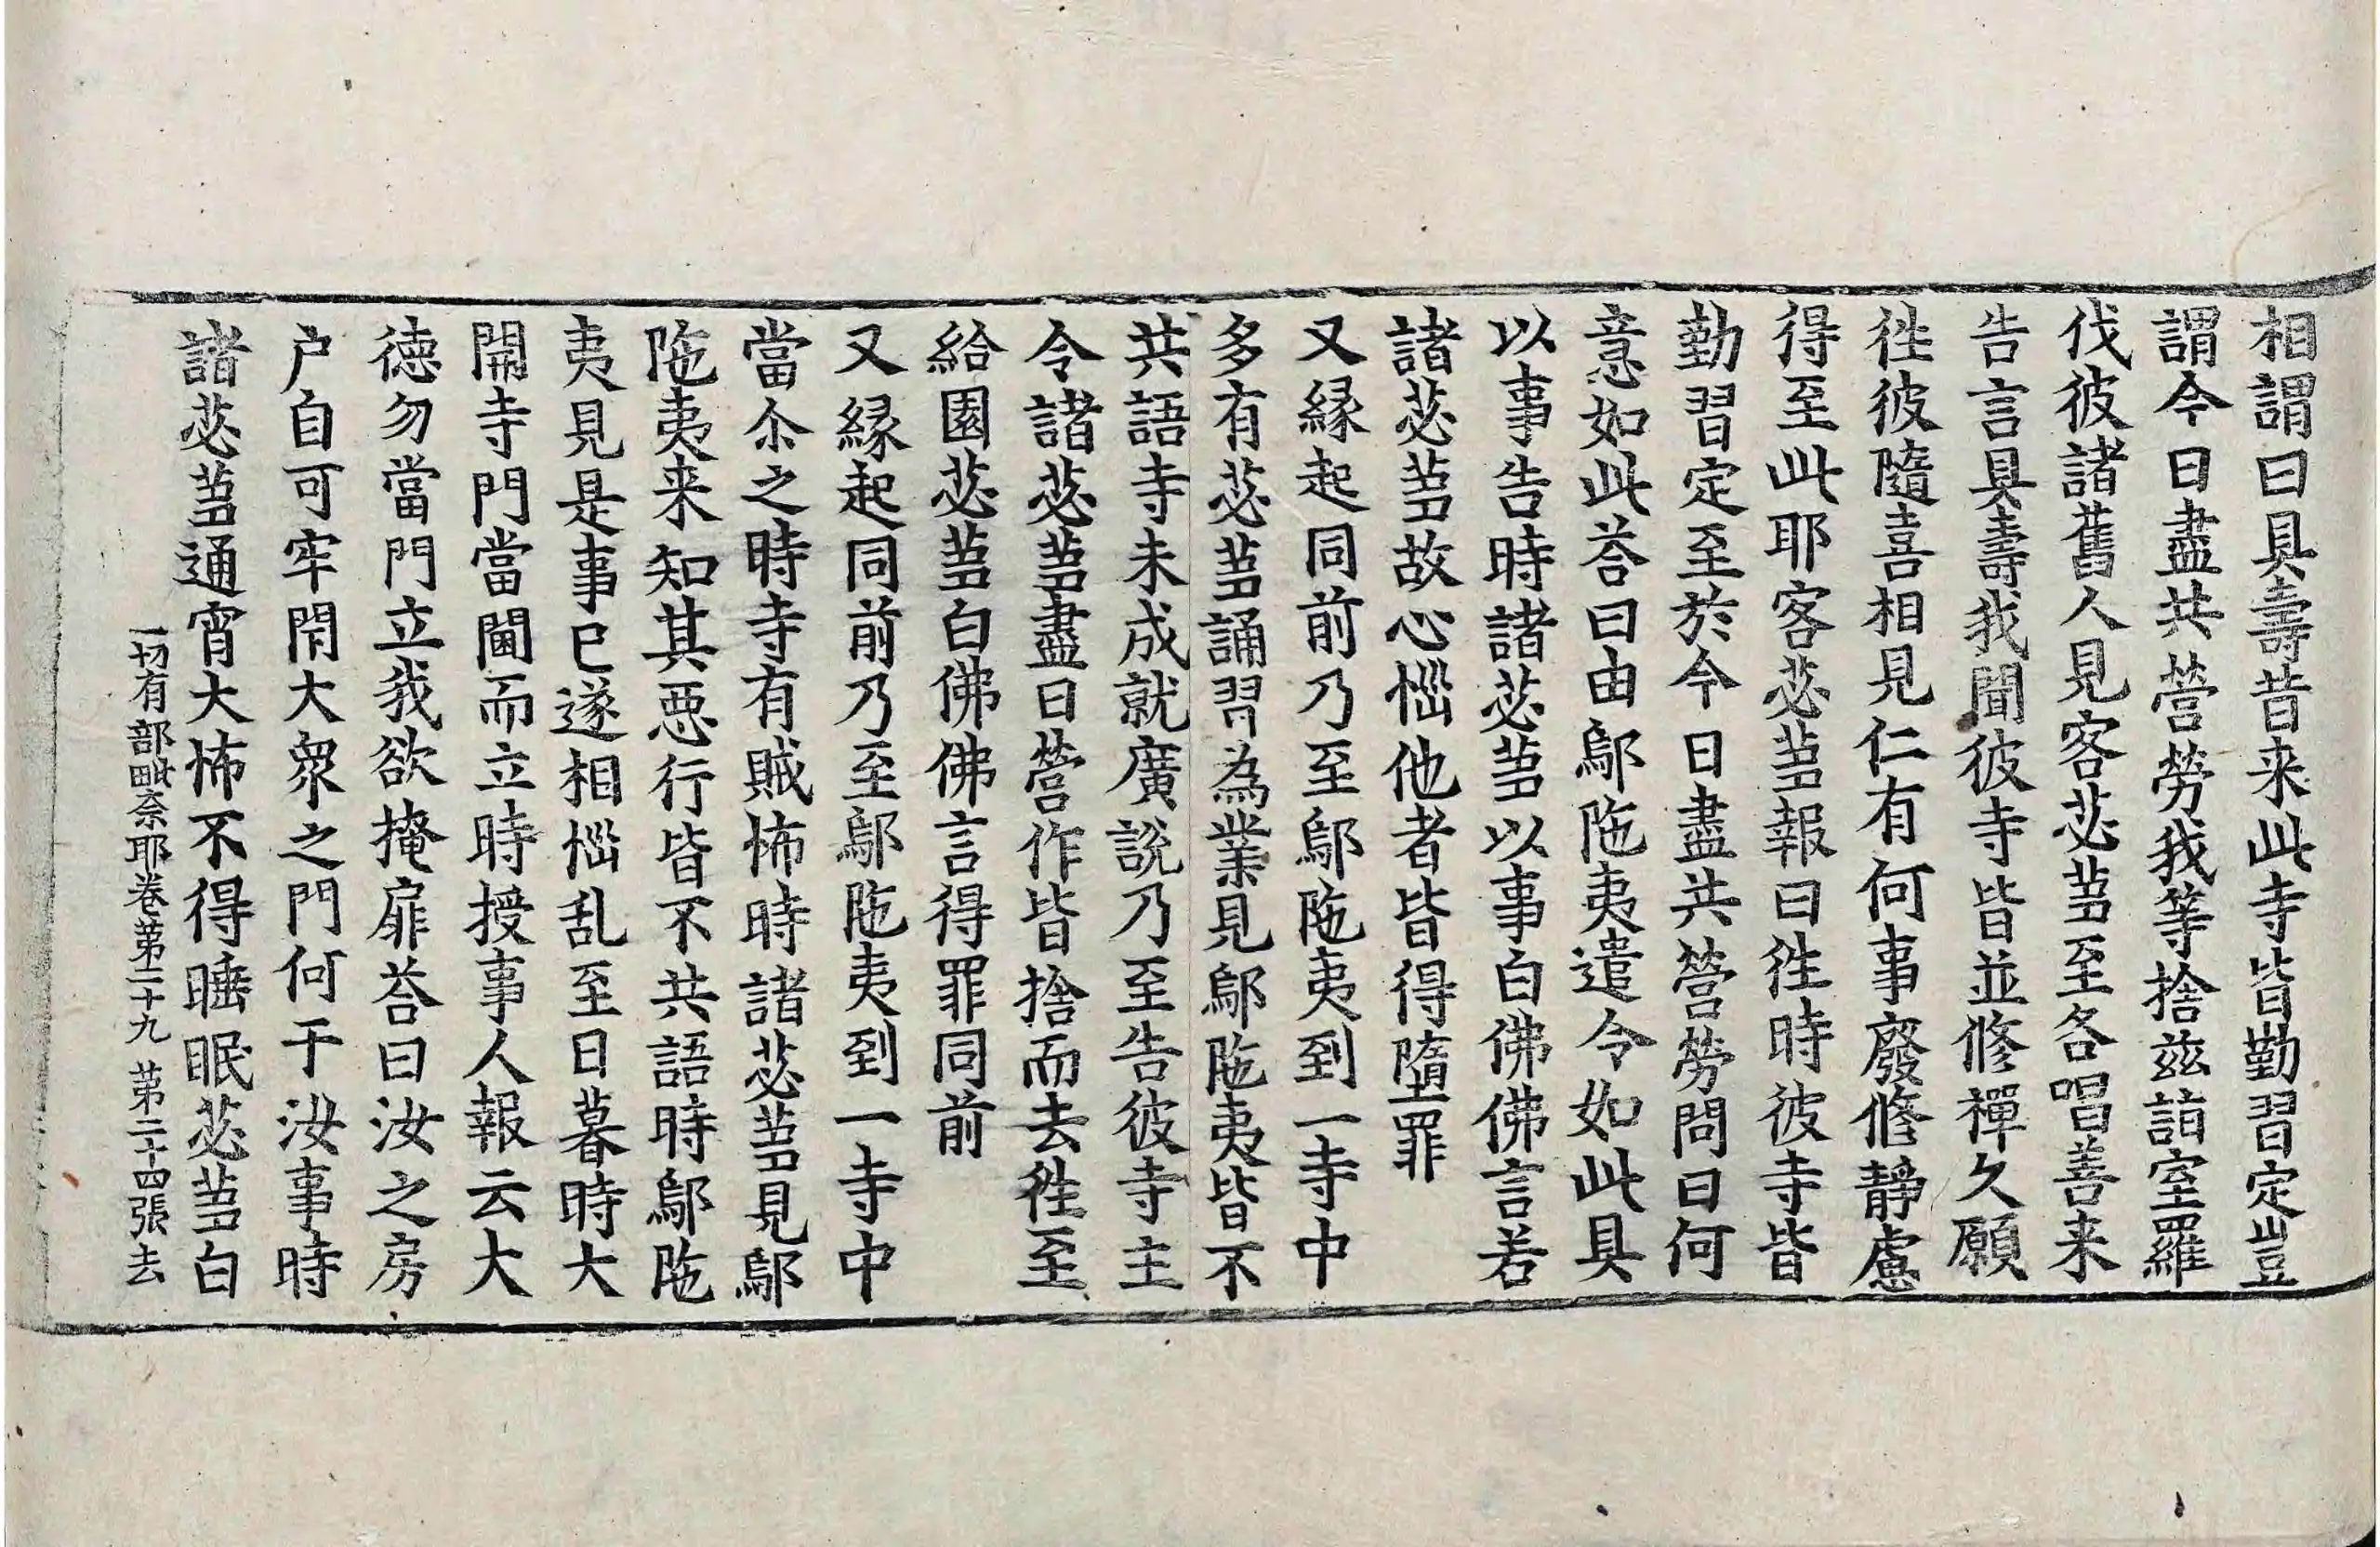 相謂曰具壽昔来此寺皆勤習定豈
謂今日盡共營勞我等捨兹詣室羅
伐彼諸舊人見客苾芻至各唱善来
告言具壽我聞彼寺皆並修禪久願
徃彼隨喜相見仁有何事廢修靜慮
得至此耶客苾芻報曰徃時彼寺皆
勤習定至於今日盡共營勞問曰何
意如此荅曰由鄔陁夷遣令如此具
以事告時諸苾芻以事白佛佛言若
諸苾芻故心惱他者皆得墮罪
又縁起同前乃至鄔陁夷到一寺中
多有苾芻誦習為業見鄔陁夷皆不
共語寺未成就廣說乃至告彼寺主
令諸苾芻盡日營作皆捨而去徃至
給園苾芻白佛佛言得罪同前
又縁起同前乃至鄔陁夷到一寺中
當尒之時寺有賊怖時諸苾芻見鄔
陁夷来知其惡行皆不共語時鄔陁
夷見是事已遂相惱乱至日暮時大
開寺門當閫而立時授事人報云大
德勿當門立我欲掩扉荅曰汝之房
户自可牢閇大衆之門何干汝事時
諸苾芻通宵大怖不得睡眠苾芻白
一切有部毗奈耶卷第二十九 第二十四張去